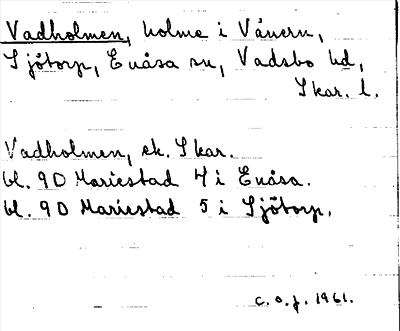 Vadholmen, holme i Vänern,
Sjötorp, Enåsa sn, Vadsbo hd,
Skar. l.
Vadholmen, ek. Skar.
bl. 9D Mariestad 4 i Enåsa.
bl. 9D Mariestad 5 i Sjötorp.
C.O.J. 1961.